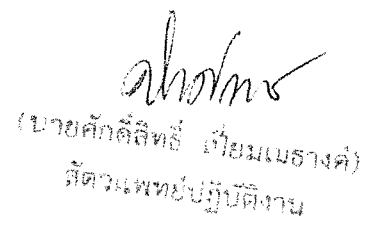 (นายศักดิ์สิทธิ์ เปี่ยมเมธางค์)
สัตวแพทย์ปฏิบัติงาน